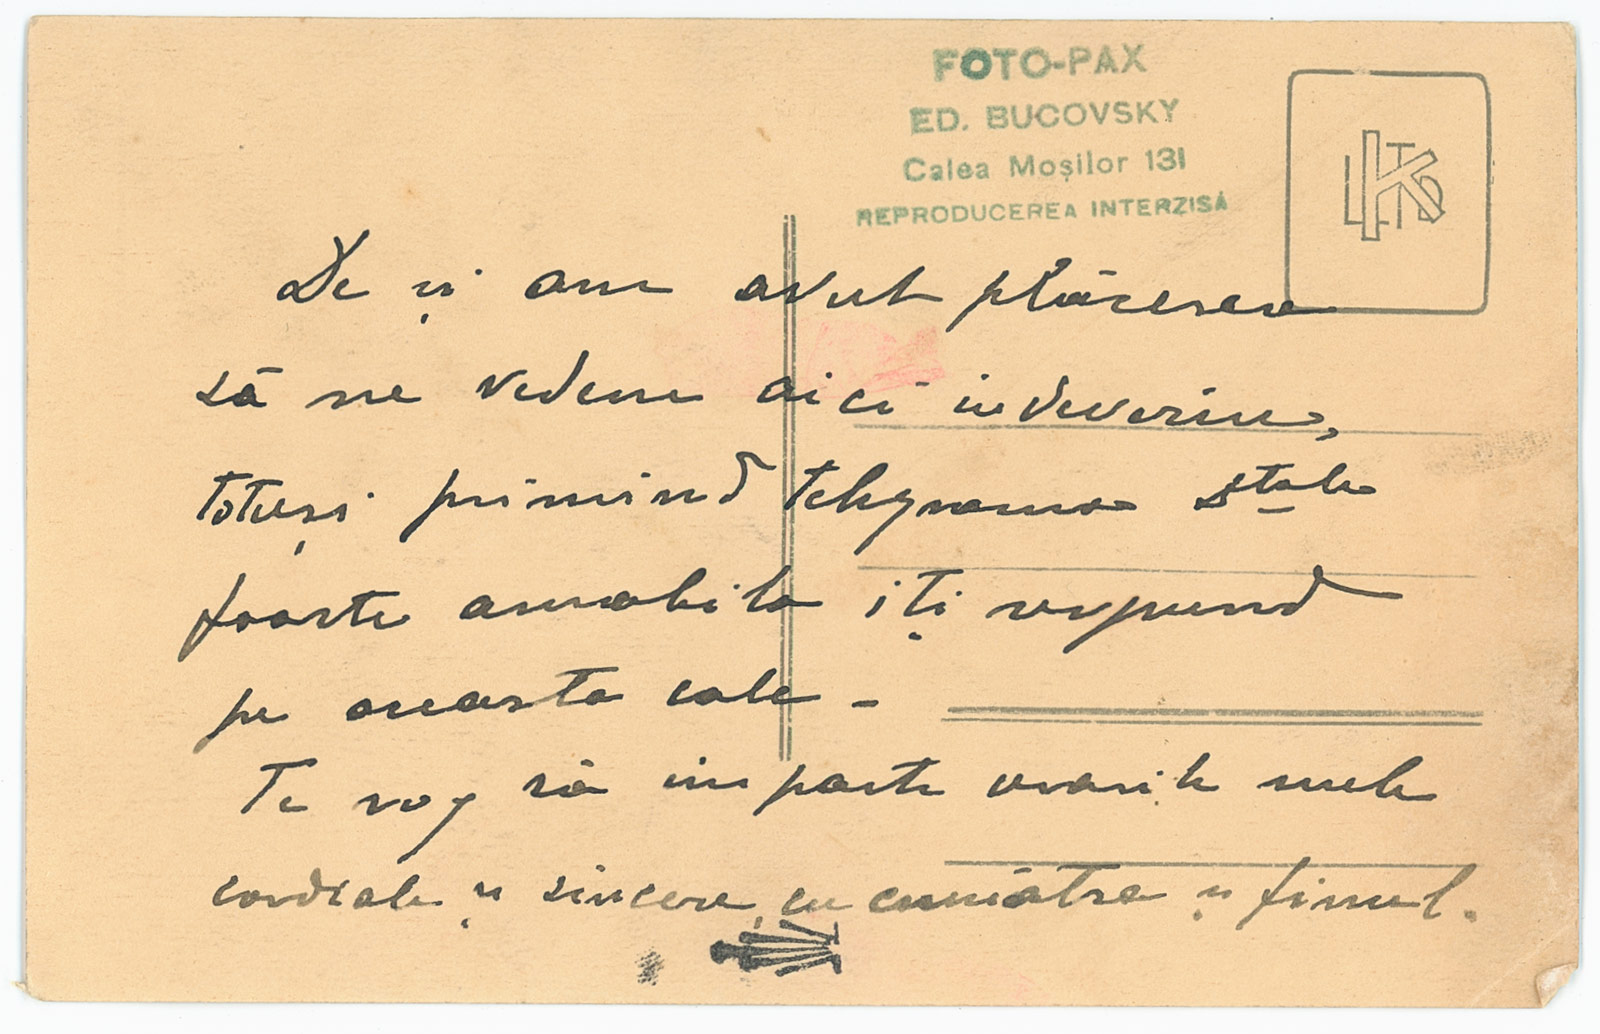 FOTO-PAX
ED. BUCOVSKY
Calea Moșilor 131
REPRODUCEREA INTERZISĂ
De și am avut plăcerea
să ne vedem aici indeverine,
totuși primind telegrama d-tale
foarte amabila iți respund
pe aceasta cale -
Te rog să imparte urarile mele
cordiale și sincere, cu cumătra și finul.